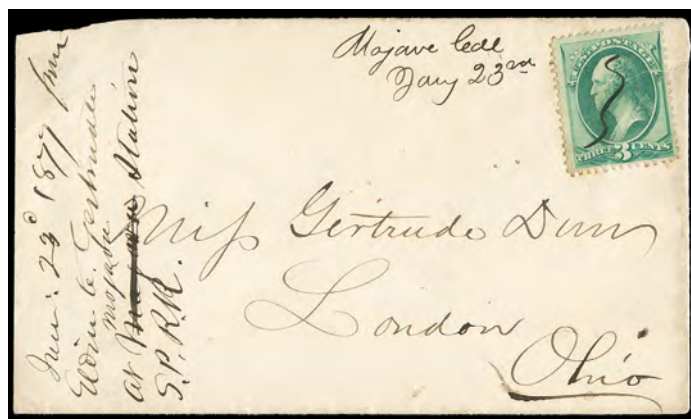 Mojave Cal
Jany 23rd
U.S. POSTAGE
THREE 3 CENTS
Miss Gertrude Dunn
London
Ohio
1877 from
Gertrude
Mojave
at Station
S.P.R.R.